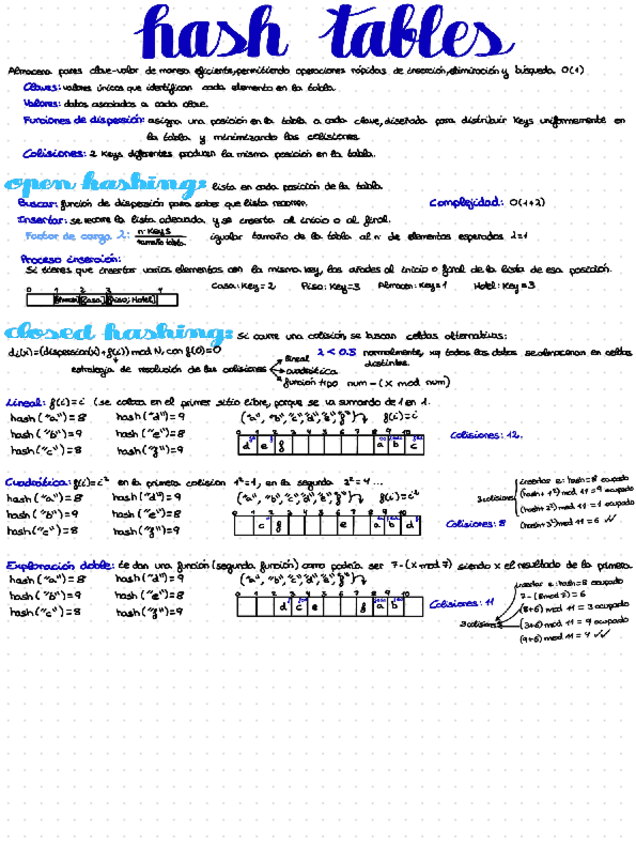 hash tables
Almacena pares clave-valor de manera eficiente, permitiendo operaciones rápidas de inserción, eliminación y búsqueda. O(1)
Claves: valores únicos que identifican cada elemento en la tabla.
Valores: datos asociados a cada clave.
Funciones de dispersión: asigna una posición en la tabla a cada clave, diseñada para distribuir Keys uniformemente en
la tabla y minimizando las colisiones
Colisiones: 2 Keys diferentes producen la misma posición en la tabla.
open hashing: lista en cada posición de la tabla
Buscar: función de dispersión para saber que lista recorrer. Complejidad: O(1+λ)
Insertar: se recorre la lista adecuada y se inserta al inicio o al final.
Factor de carga λ: n· Keys / tamaño tabla. igualar tamaño de la tabla al nº de elementos esperados λ=1
Proceso inserción:
Si tienes que insertar varios elementos con la misma Key, los añades al inicio o final de la lista de esa posición.
Casa: Key=2 Piso: Key=3 Almacen: Key=1 Hotel: Key=3
0 1 2 3 4
Casa Piso, Hotel
closed hashing: si ocurre una colisión, se buscan celdas alternativas:
di(x)=(dispersion(x)+f(i)) mod N, con f(0)=0
λ < 0.5 normalmente, xq todos los datos se almacenan en celdas
distintas.
estrategia de resolución de las colisiones
lineal
cuadrática
función tipo num-(x mod num)
Lineal: f(i)=i (se coloca en el primer sitio libre, porque se va sumando de 1 en 1.
hash("a")=8 hash("d")=9 {"a", "b", "c", "d", "e", "f"} f(i)=i
hash("b")=9 hash("e")=8
hash("c")=8 hash("f")=9
0 1 2 3 4 5 6 7 8 9 10
d e f a b c
Colisiones: 12.
Cuadrática: f(i)=i² en la primera colision 1²=1, en la segunda 2²=4...
hash("a")=8 hash("d")=9 {"a", "b", "c", "d", "e", "f"} f(i)=i²
hash("b")=9 hash("e")=8
hash("c")=8 hash("f")=9
0 1 2 3 4 5 6 7 8 9 10
c f e a b d
Colisiones: 8
3 colisiones
insertar e: hash=8 ocupado
(hash+1²) mod 11 = 9 ocupado
(hash+2²) mod 11 = 1 ocupado
(hash+3²) mod 11 = 6
Exploración doble: te dan una función (segunda función) como podría ser 7-(x mod 7) siendo x el resultado de la primera.
hash("a")=8 hash("d")=9 {"a", "b", "c", "d", "e", "f"}
hash("b")=9 hash("e")=8
hash("c")=8 hash("f")=9
0 1 2 3 4 5 6 7 8 9 10
d c e f a b
Colisiones: 11
3 colisiones
insertar e: hash=8 ocupado
7-(8mod 7)=6
(8+6) mod 11 = 3 ocupado
(3+6) mod 11 = 9 ocupado
(9+6) mod 11 = 4